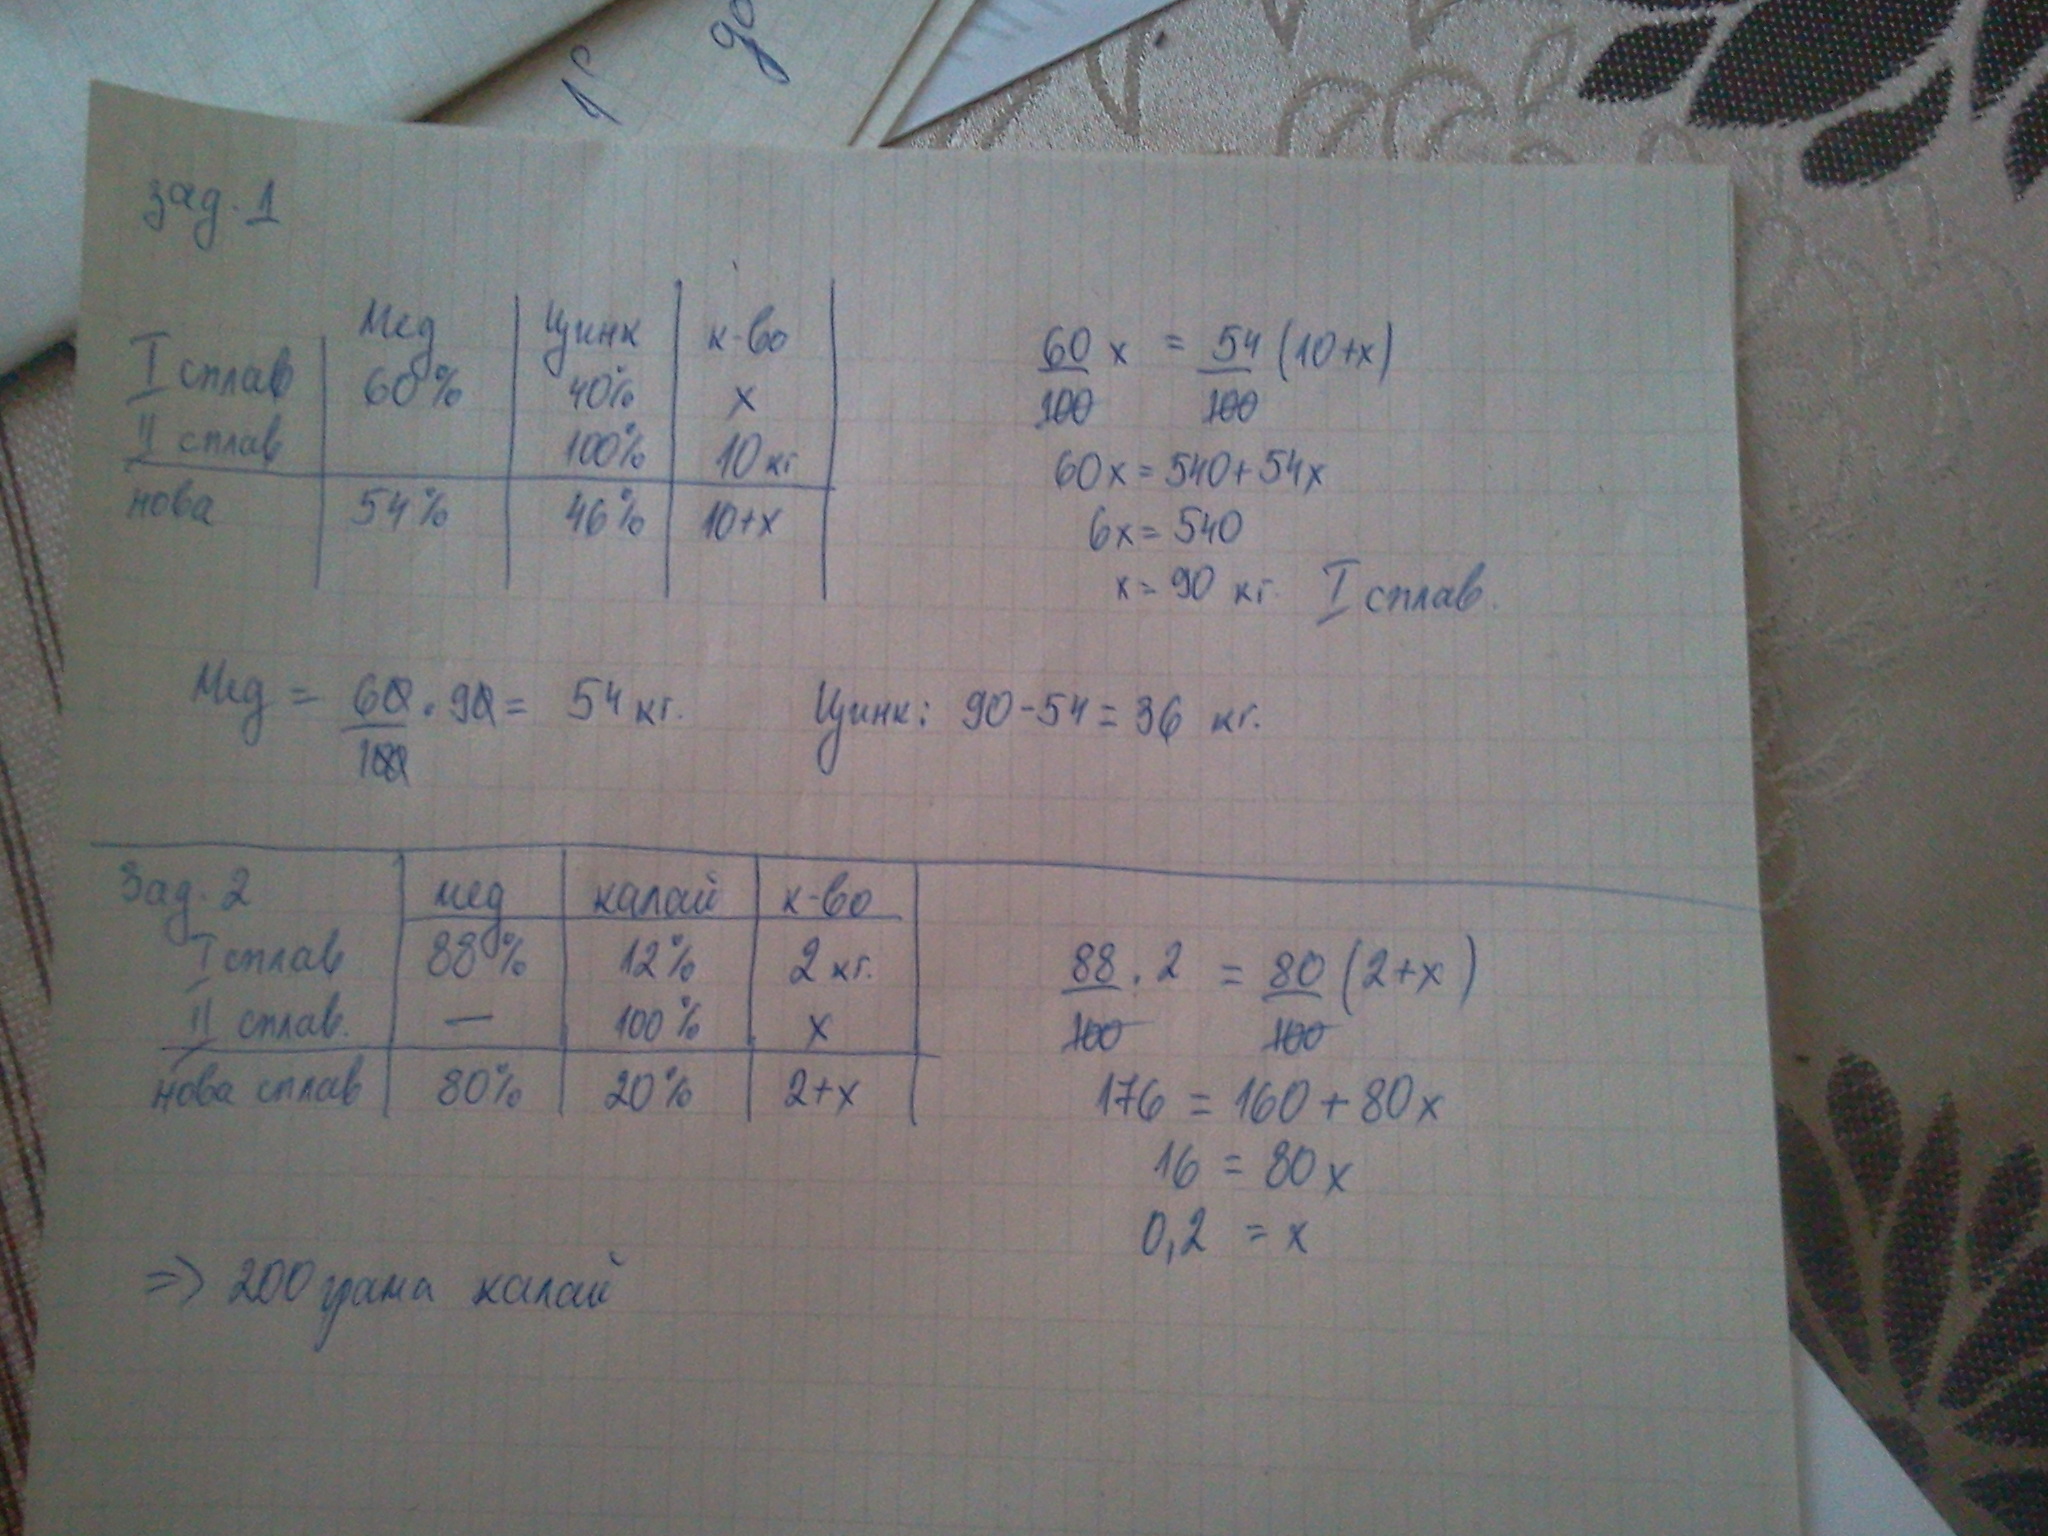 зад. 1
Мед Цинк к-во
I сплав 60% 40% x
II сплав 100% 10 кг
нова 54% 46% 10+x
60/100 x = 54/100 (10+x)
60x = 540 + 54x
6x = 540
x = 90 кг. I сплав.
Мед = 60/100 . 90 = 54 кг. Цинк: 90 - 54 = 36 кг.
Зад. 2 мед калай к-во
I сплав 88% 12% 2 кг.
II сплав. — 100% x
нова сплав 80% 20% 2+x
88/100 . 2 = 80/100 (2+x)
176 = 160 + 80x
16 = 80x
0,2 = x
=> 200 грама калай